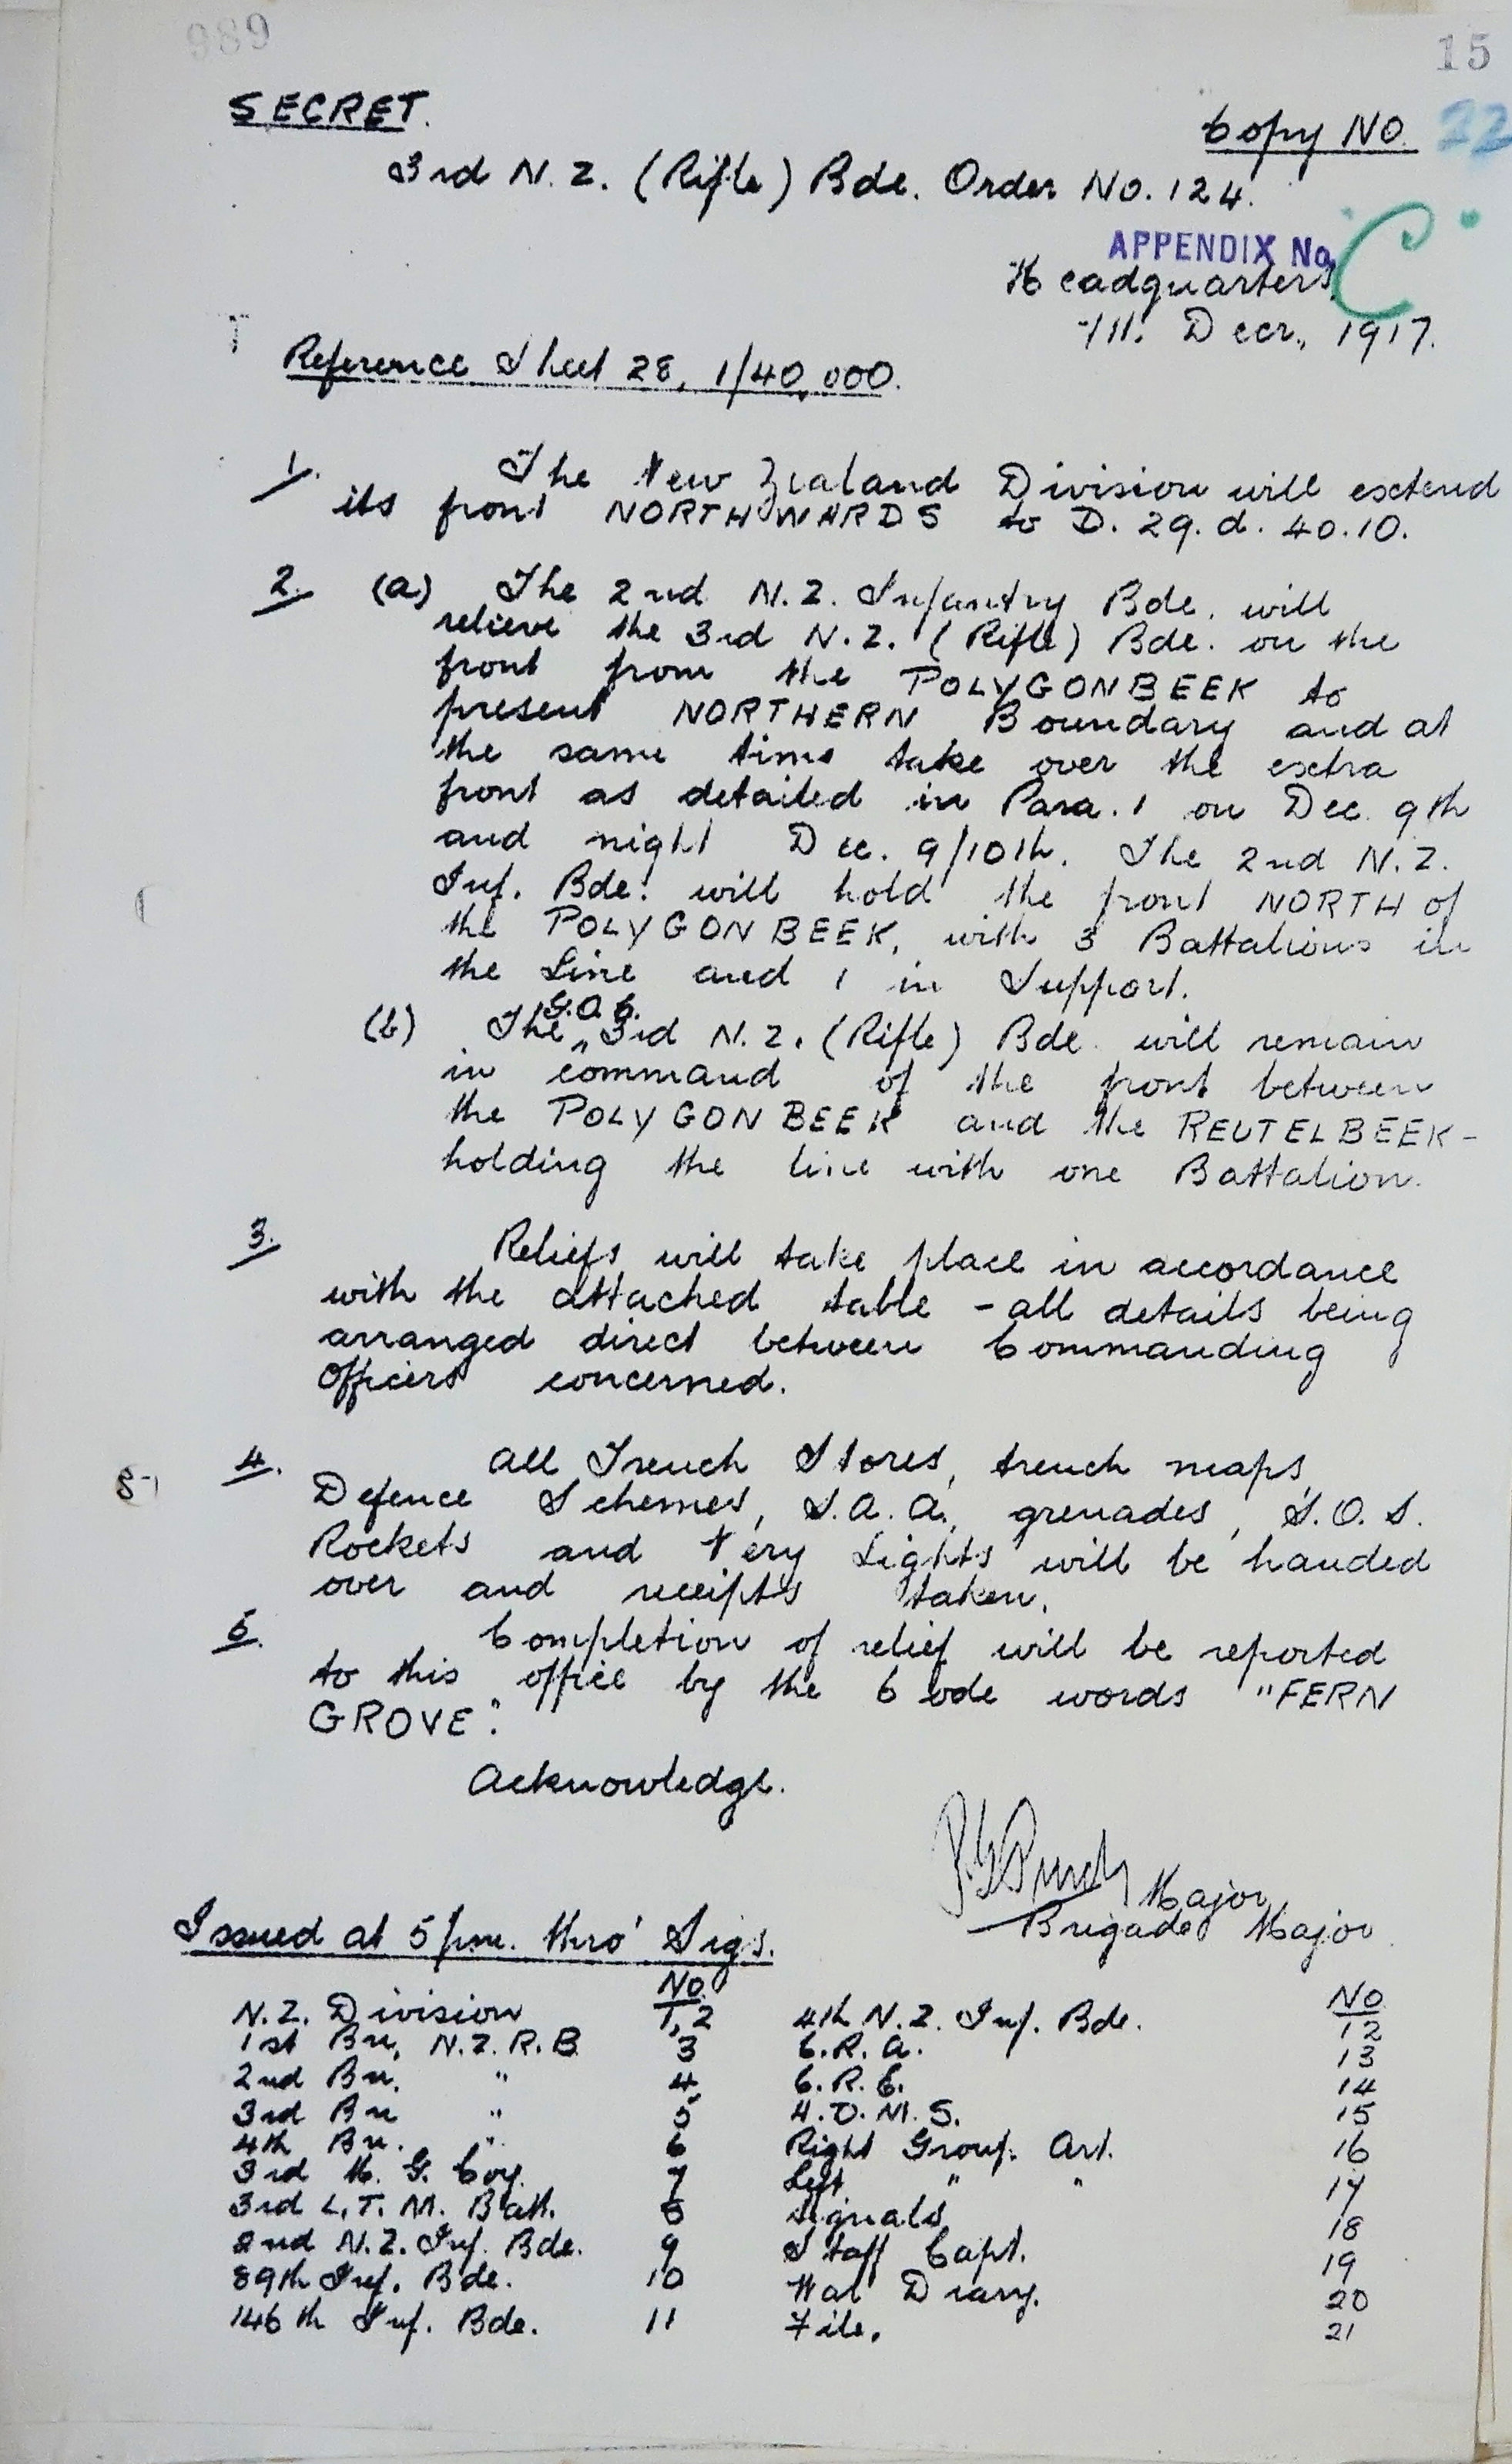 989
15
SECRET.
Copy No. 22
3rd N.Z. (Rifle) Bde. Order No. 124.
APPENDIX No. "C"
Headquarters,
Decr., 1917.
Reference Sheet 28, 1/40,000.
1. The New Zealand Division will extend
its front NORTHWARDS to D. 29. d. 40.10.
2. (a) The 2nd N.Z. Infantry Bde. will
relieve the 3rd N.Z. (Rifle) Bde. on the
front from the POLYGONBEEK to
present NORTHERN Boundary and at
the same time take over the extra
front as detailed in Para. 1 on Dec. 9th
and night Dec. 9/10th. The 2nd N.Z.
Inf. Bde. will hold the front NORTH of
the POLYGONBEEK, with 3 Battalions in
the Line and 1 in Support.
(b) The G.O.C. 3rd N.Z. (Rifle) Bde will remain
in command of the front between
the POLYGONBEEK and the REUTELBEEK -
holding the line with one Battalion.
3. Reliefs will take place in accordance
with the attached table - all details being
arranged direct between Commanding
Officers concerned.
4. All Trench Stores, trench maps,
Defence Schemes, S.A.A., grenades, S.O.S.
Rockets and Very Lights will be handed
over and receipts taken.
5. Completion of relief will be reported
to this office by the Code words "FERN
GROVE".
Acknowledge.
Major
Brigade Major.
Issued at 5 pm. thro' Sigs.
No. No
N.Z. Division 1, 2 4th N.Z. Inf. Bde. 12
1st Bn, N.Z.R.B. 3 C.R.A. 13
2nd Bn. " 4 C.R.E. 14
3rd Bn " 5 A.D.M.S. 15
4th Bn. " 6 Right Group. Art. 16
3rd M.G. Coy. 7 Left " " 17
3rd L.T.M. Batt. 8 Signals 18
2nd N.Z. Inf. Bde. 9 Staff Capt. 19
89th Inf. Bde. 10 War Diary. 20
146th Inf. Bde. 11 File. 21